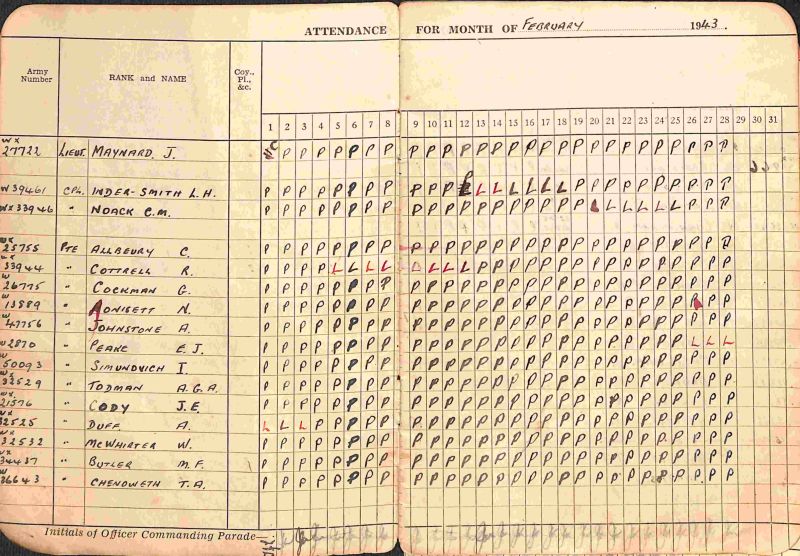 ATTENDANCE FOR MONTH OF FEBRUARY 1943.
Army Number RANK and NAME Coy., Pl., &c.
1 2 3 4 5 6 7 8 9 10 11 12 13 14 15 16 17 18 19 20 21 22 23 24 25 26 27 28 29 30 31
WX 27722 LIEUT. MAYNARD J. P P P P P P P P P P P P P P P P P P P P P P P P P P P
W39461 CPL. INDER-SMITH L.H. P P P P P P P P P P P P L L L L L L P P P P P P P P P P
WX33946 " NOACK C.M. P P P P P P P P P P P P P P P P P P P L L L L L L P P P
WX 25755 PTE ALLBEURY C. P P P P P P P P P P P P P P P P P P P P P P P P P P P P
WX 33944 " COTTRELL R. P P P P L L L L L L L L P P P P P P P P P P P P P P P P
W 26775 " COCKMAN G. P P P P P P P P P P P P P P P P P P P P P P P P P P P P
W 13889 " ADNISETT N. P P P P P P P P P P P P P P P P P P P P P P P P P P P
W 47756 " JOHNSTONE A. P P P P P P P P P P P P P P P P P P P P P P P P P P P P
W2870 " PEAKE E.J. P P P P P P P P P P P P P P P P P P P P P P P P P L L L
W 50093 " SIMUNOVICH I. P P P P P P P P P P P P P P P P P P P P P P P P P P P P
WX 32529 " TODMAN A.G.A. P P P P P P P P P P P P P P P P P P P P P P P P P P P P
WX 21576 " CODY J.E. P P P P P P P P P P P P P P P P P P P P P P P P P P P P
WX 32525 " DUFF A. L L L P P P P P P P P P P P P P P P P P P P P P P P P P
WX 32532 " McWHIRTER W. P P P P P P P P P P P P P P P P P P P P P P P P P P P P
WX 34437 " BUTLER M.F. P P P P P P P P P P P P P P P P P P P P P P P P P P P P
W 36643 " CHENOWETH T.A. P P P P P P P P P P P P P P P P P P P P P P P P P P P P
Initials of Officer Commanding Parade